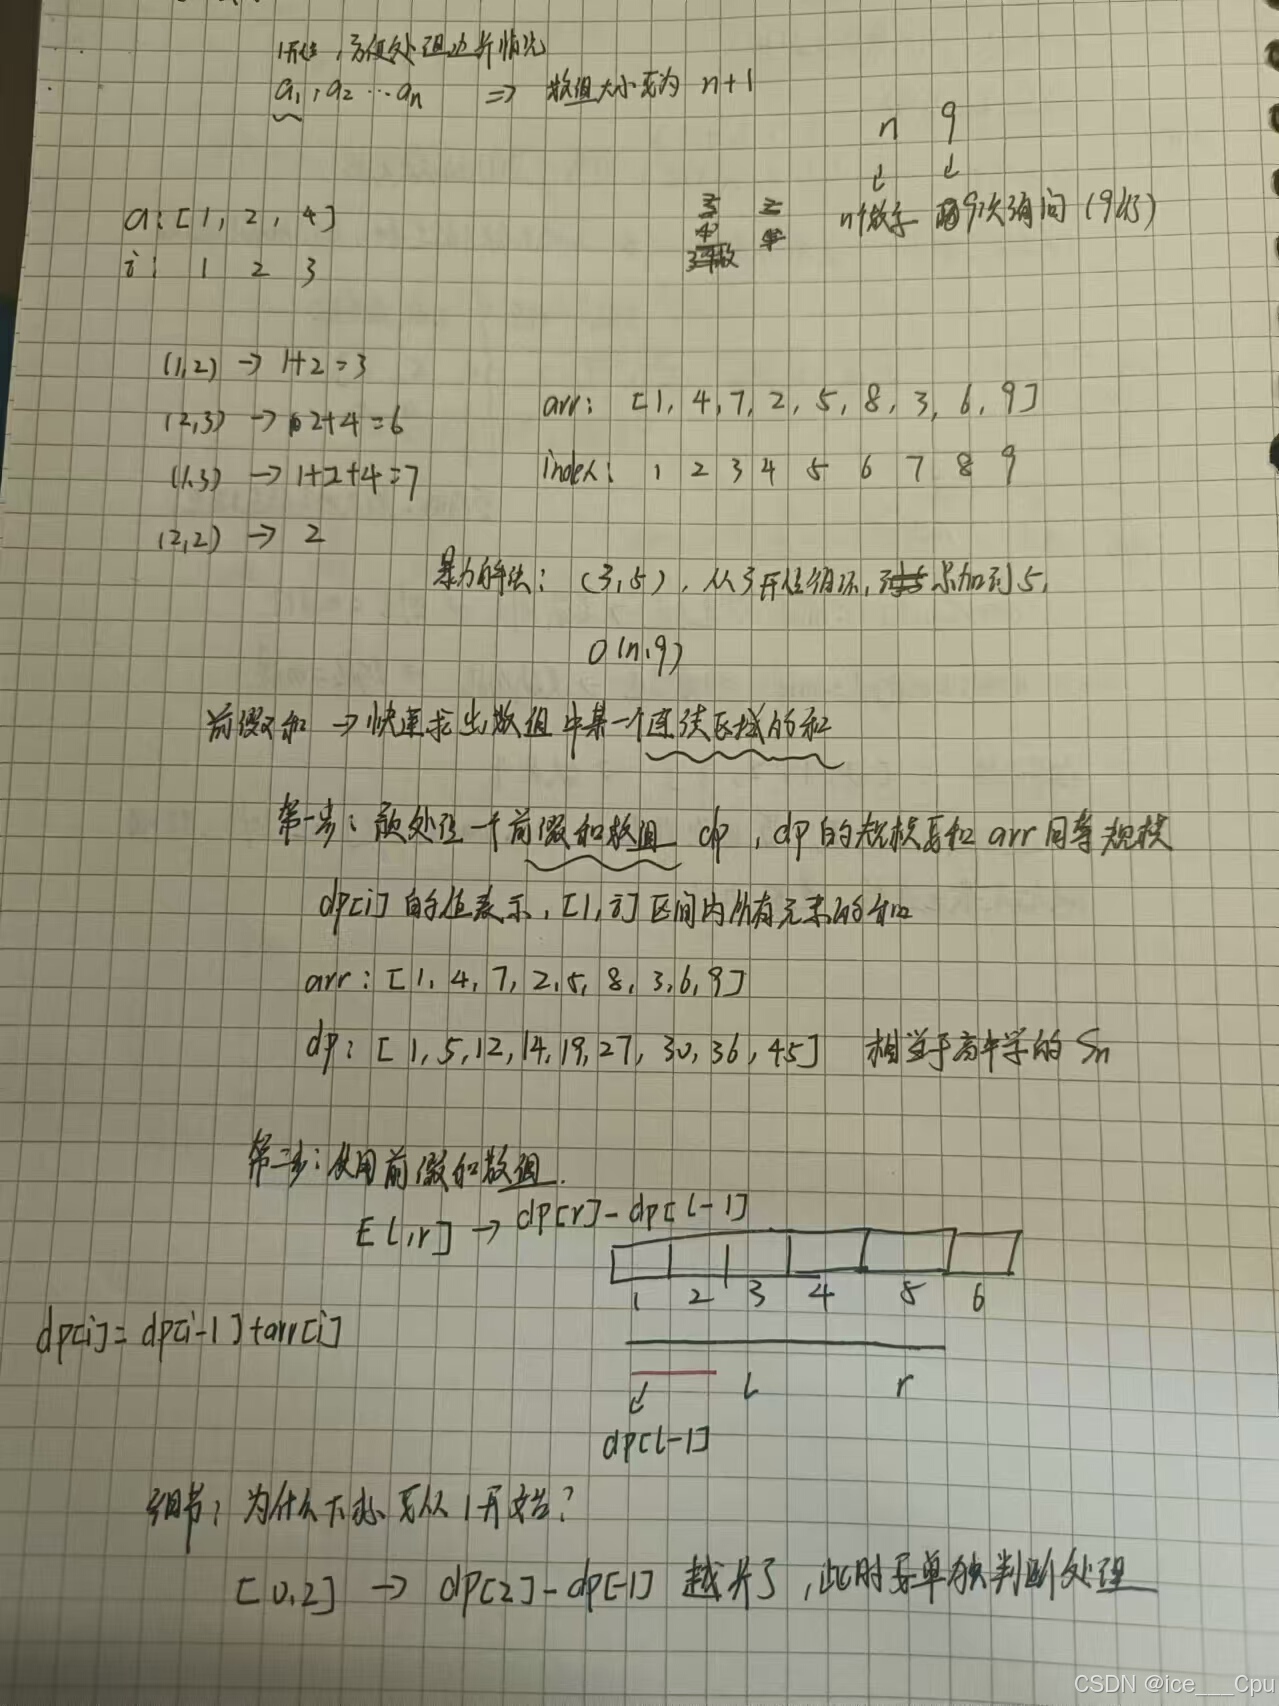 1开始,方便处理边界情况
a1,a2…an ⇒ 数组大小要为 n+1
n q
↓ ↓
n个数字 q次询问(q行)
a:[1, 2, 4]
i: 1 2 3
(1,2) → 1+2=3
(2,3) → 2+4=6
(1,3) → 1+2+4=7
(2,2) → 2
arr: [1, 4, 7, 2, 5, 8, 3, 6, 9]
index: 1 2 3 4 5 6 7 8 9
暴力解法:(3,5),从3开始循环,累加到5,
O(n·q)
前缀和 → 快速求出数组中某一个连续区域的和
第一步:预处理一个前缀和数组 dp,dp的规模要和 arr 同等规模
dp[i] 的值表示,[1,i]区间内所有元素的和
arr:[1, 4, 7, 2, 5, 8, 3, 6, 9]
dp:[1, 5, 12, 14, 19, 27, 30, 36, 45] 相当于高中学的 Sn
第二步:使用前缀和数组.
[l,r] → dp[r]-dp[l-1]
1 2 3 4 5 6
dp[i]=dp[i-1]+arr[i]
l r
dp[l-1]
细节:为什么下标要从1开始?
[0,2] → dp[2]-dp[-1] 越界了,此时要单独判断处理
CSDN @ice___Cpu